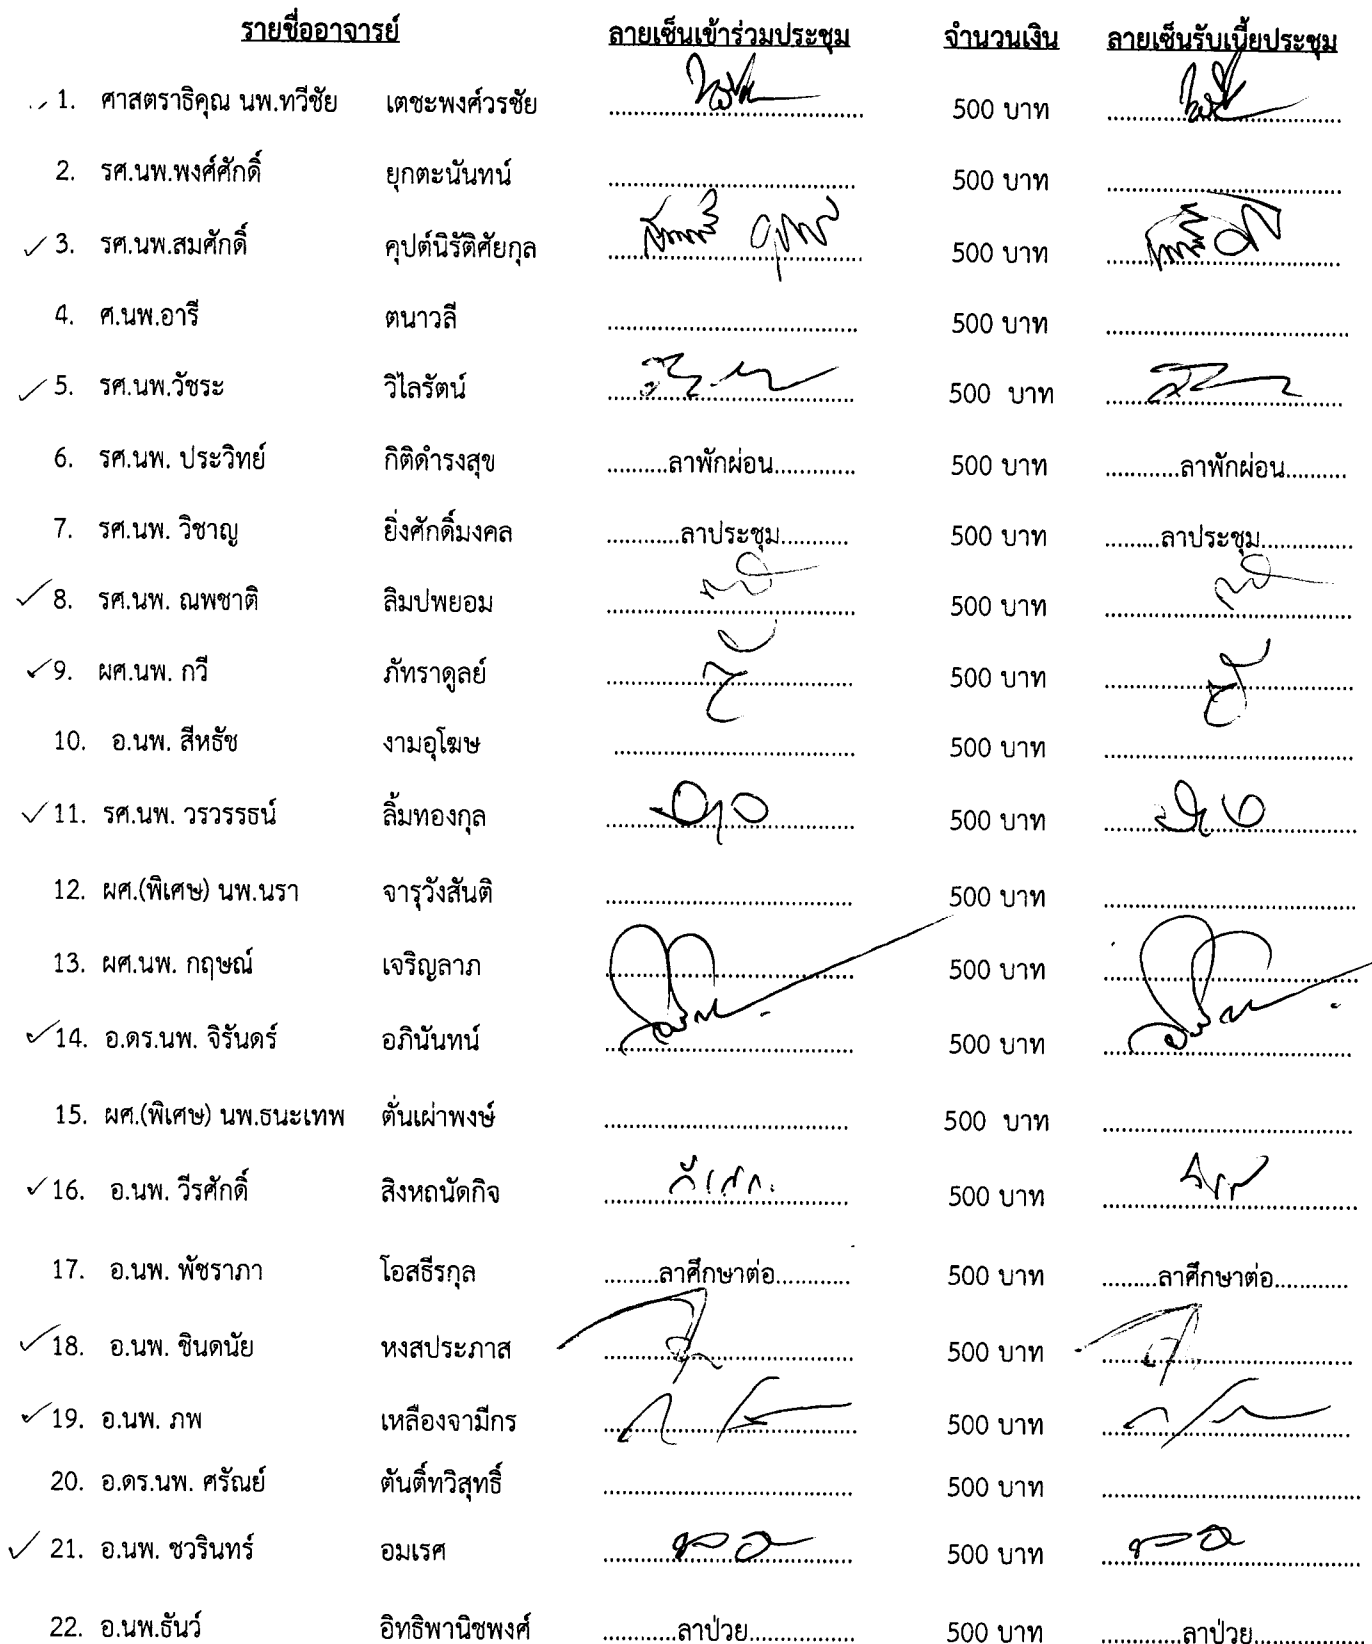 รายชื่ออาจารย์ ลายเซ็นเข้าร่วมประชุม จำนวนเงิน ลายเซ็นรับเบี้ยประชุม
1. ศาสตราธิคุณ นพ.ทวีชัย เตชะพงศ์วรชัย 500 บาท
2. รศ.นพ.พงศ์ศักดิ์ ยุกตะนันทน์ 500 บาท
3. รศ.นพ.สมศักดิ์ คุปต์นิรัติศัยกุล 500 บาท
4. ศ.นพ.อารี ตนาวลี 500 บาท
5. รศ.นพ.วัชระ วิไลรัตน์ 500 บาท
6. รศ.นพ. ประวิทย์ กิติดำรงสุข ..........ลาพักผ่อน............. 500 บาท ............ลาพักผ่อน..........
7. รศ.นพ. วิชาญ ยิ่งศักดิ์มงคล ............ลาประชุม........... 500 บาท .........ลาประชุม...............
8. รศ.นพ. ณพชาติ ลิมปพยอม 500 บาท
9. ผศ.นพ. กวี ภัทราดูลย์ 500 บาท
10. อ.นพ. สีหธัช งามอุโฆษ 500 บาท
11. รศ.นพ. วรวรรธน์ ลิ้มทองกุล 500 บาท
12. ผศ.(พิเศษ) นพ.นรา จารุวังสันติ 500 บาท
13. ผศ.นพ. กฤษณ์ เจริญลาภ 500 บาท
14. อ.ดร.นพ. จิรันดร์ อภินันทน์ 500 บาท
15. ผศ.(พิเศษ) นพ.ธนะเทพ ตั่นเผ่าพงษ์ 500 บาท
16. อ.นพ. วีรศักดิ์ สิงหถนัดกิจ 500 บาท
17. อ.นพ. พัชราภา โอสธีรกุล .........ลาศึกษาต่อ............ 500 บาท .........ลาศึกษาต่อ............
18. อ.นพ. ชินดนัย หงสประภาส 500 บาท
19. อ.นพ. ภพ เหลืองจามีกร 500 บาท
20. อ.ดร.นพ. ศรัณย์ ตันติ์ทวิสุทธิ์ 500 บาท
21. อ.นพ. ชวรินทร์ อมเรศ 500 บาท
22. อ.นพ.ธันว์ อิทธิพานิชพงศ์ ............ลาป่วย................. 500 บาท .............ลาป่วย................